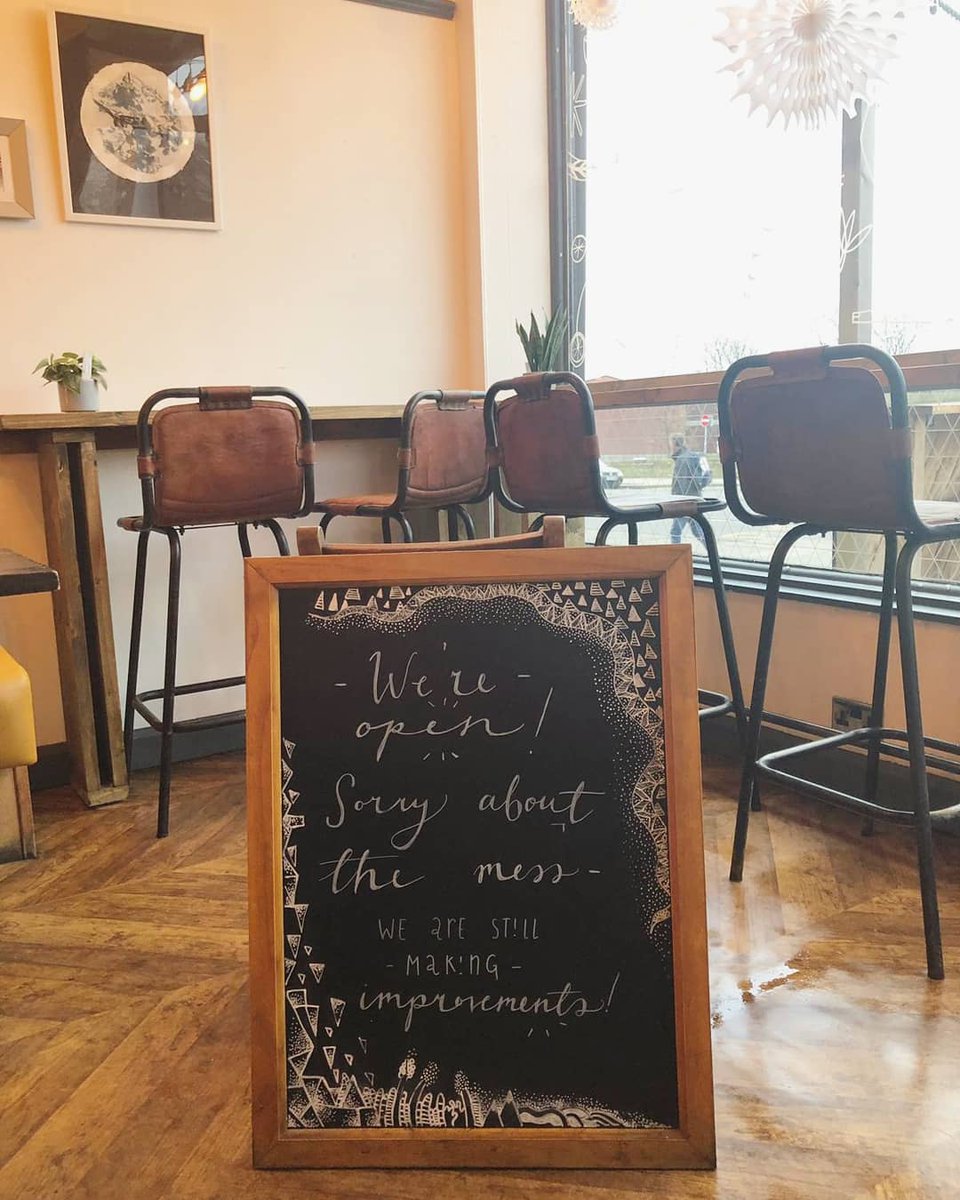 - We're -
open!
Sorry about
the mess -
WE are STILL
- MaKiNG -
improvements!